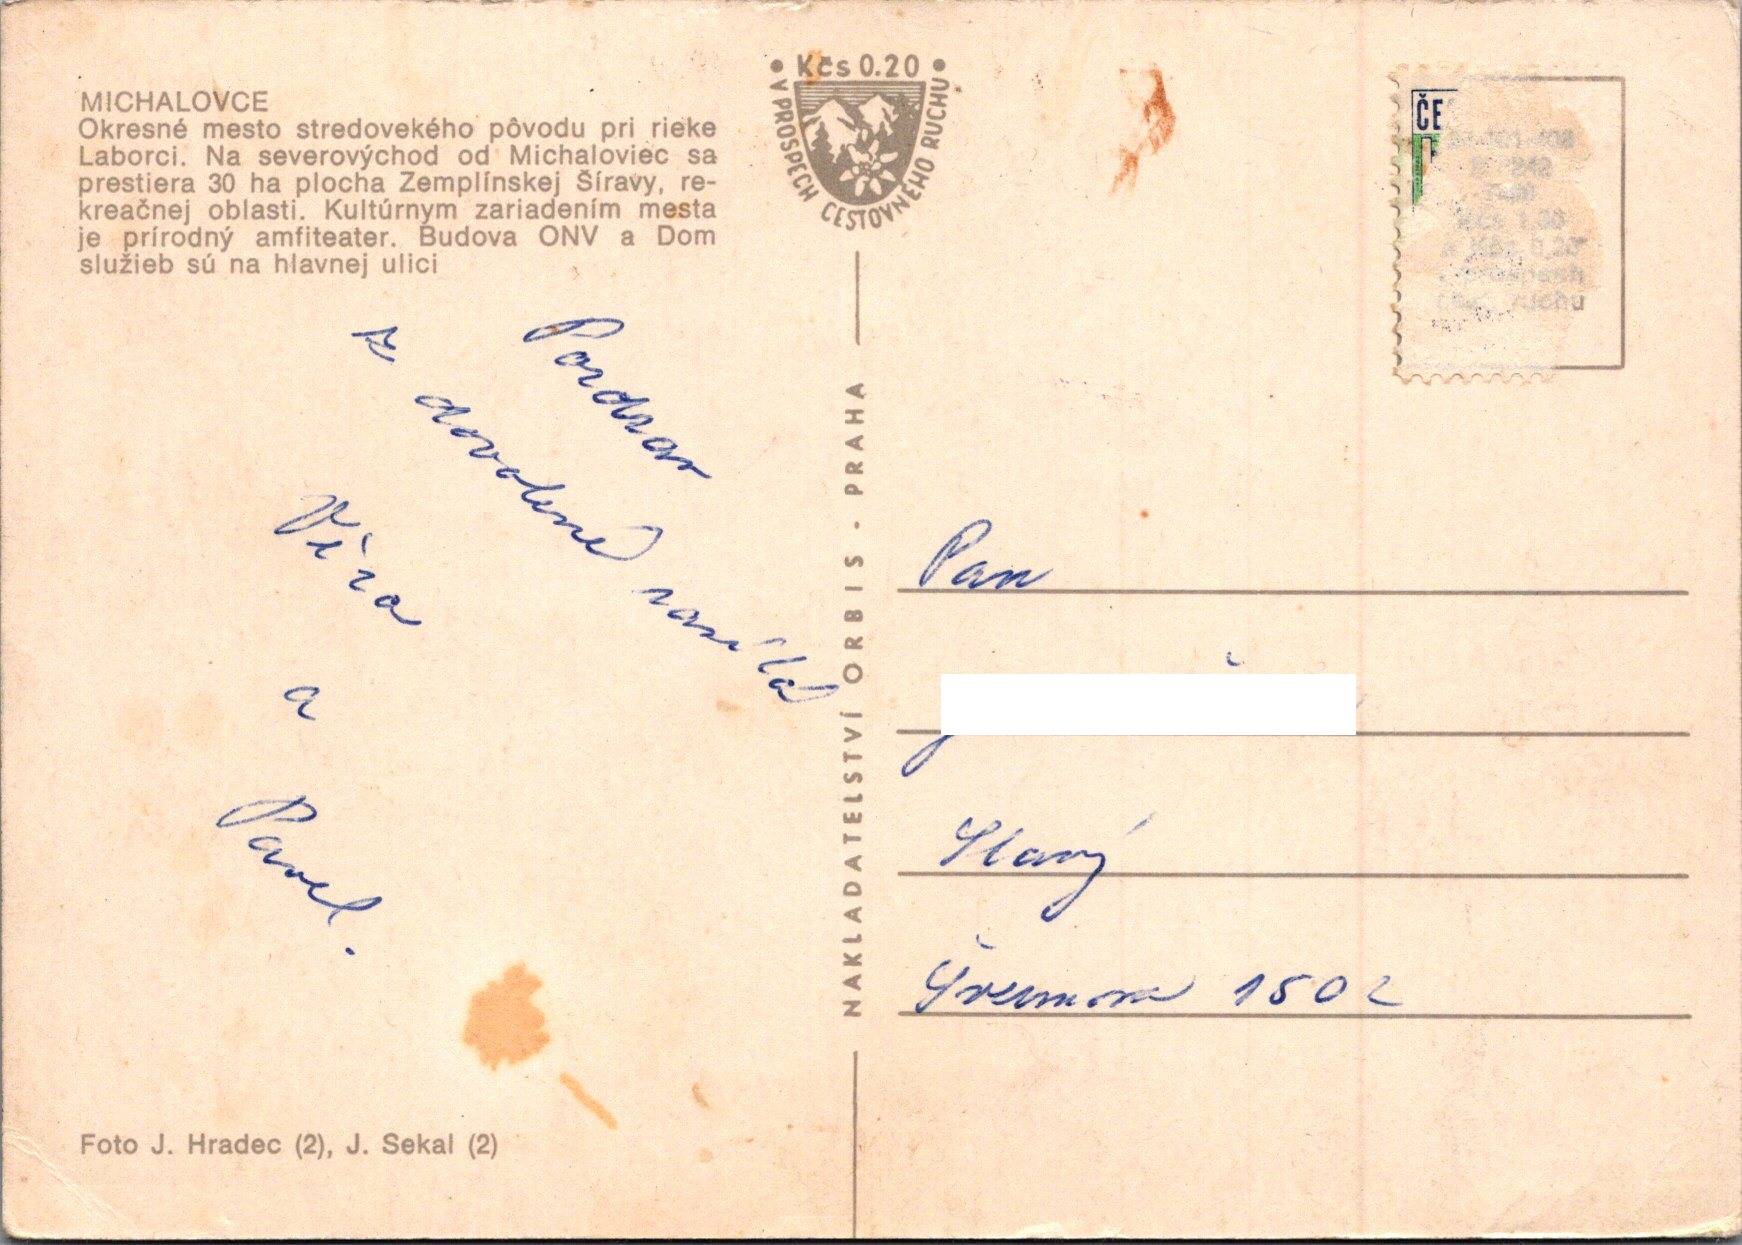 MICHALOVCE
Okresné mesto stredovekého pôvodu pri rieke
Laborci. Na severovýchod od Michaloviec sa
prestiera 30 ha plocha Zemplínskej Šíravy, re-
kreačnej oblasti. Kultúrnym zariadením mesta
je prírodný amfiteater. Budova ONV a Dom
služieb sú na hlavnej ulici
Pozdrav
z dovolené zasílá
Věra
a
Pavel.
Foto J. Hradec (2), J. Sekal (2)
• Kčs 0.20 •
V PROSPECH CESTOVNÉHO RUCHU
NAKLADATELSTVÍ ORBIS - PRAHA
ČE
Kčs 1,00
a Kčs 0,20
v prospech
ruchu
Pan
Slaný
Švermova 1502